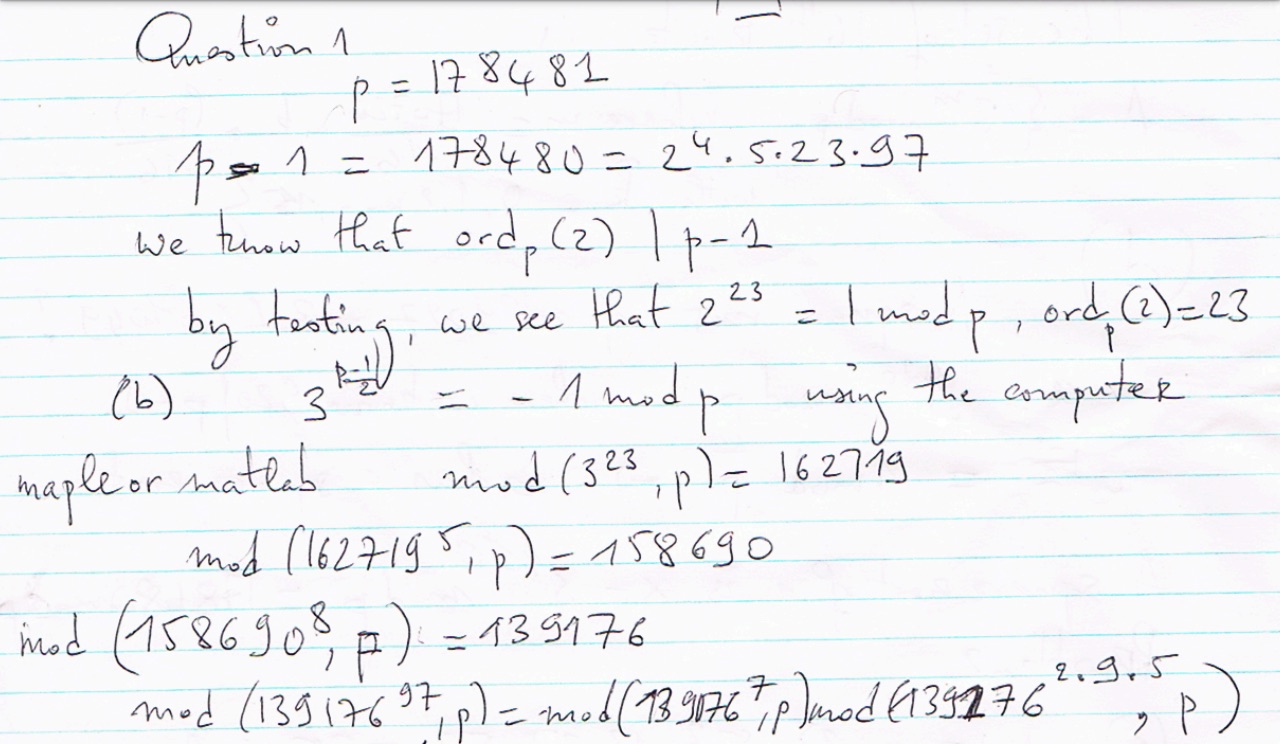 Question 1
p = 178481
p - 1 = 178480 = 2⁴ . 5 . 23 . 97
we know that ordₚ(2) | p - 1
by testing, we see that 2²³ = 1 mod p , ordₚ(2) = 23
(b) 3^((p-1)/2) = - 1 mod p using the computer
maple or matlab mod (3²³ , p) = 162719
mod (162719⁵ , p) = 158690
mod (158690⁸ , p) = 139176
mod (139176⁹⁷ , p) = mod (139176⁷ , p) mod (139176^(2.9.5) , p)